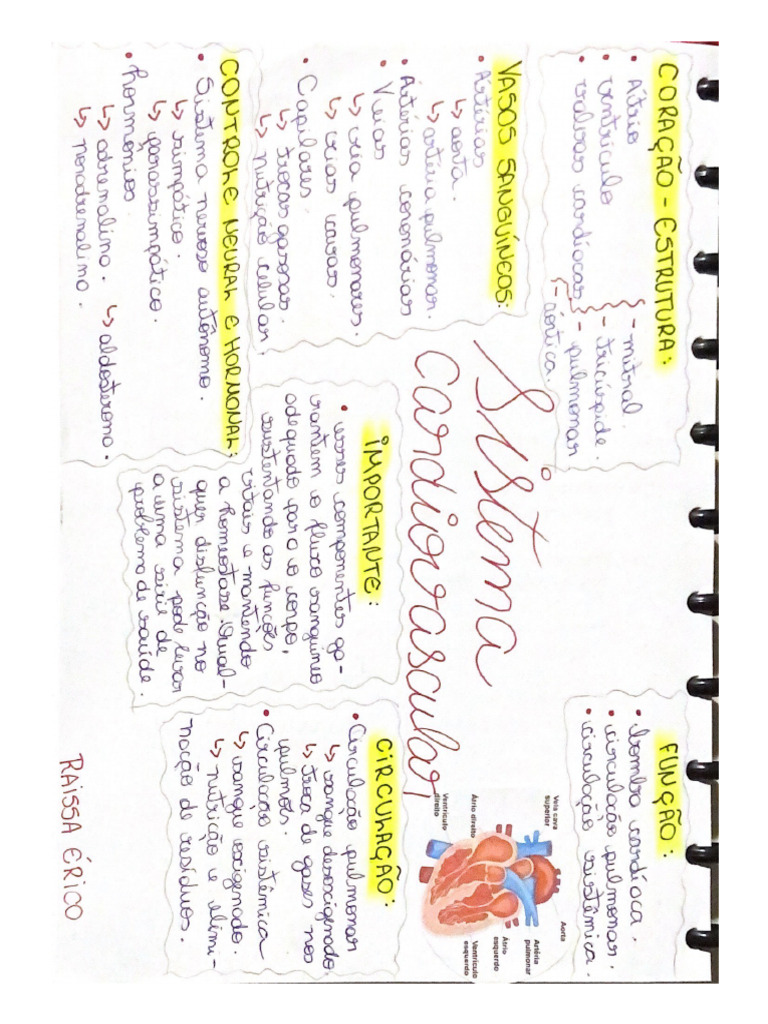 CORAÇÃO - ESTRUTURA:
• Átrio
• ventrículo
• valvas cardíacas
- mitral.
- tricúspide.
- pulmonar
- aórtica.
VASOS SANGUÍNEOS:
• Artérias
↳ aorta.
↳ artéria pulmonar.
• Artérias coronárias
• Veias
↳ veia pulmonares.
↳ veias cavas.
• Capilares.
↳ trocas gasosas.
↳ nutrição celular.
CONTROLE NEURAL E HORMONAL:
• Sistema nervoso autônomo.
↳ simpático.
↳ parassimpático.
• hormonios.
↳ adrenalina. ↳ aldosterona.
↳ noradrenalina.
Sistema
cardiovascular
IMPORTANTE:
• esses componentes ga-
rantem o fluxo sanguineo
adequado para o corpo,
sustentando as funções
vitais e mantendo
a homeostase. Qual-
quer disfunção no
sistema pode levar
a uma série de
problema de saúde.
FUNÇÃO:
• bomba cardíaca.
• circulação pulmonar.
• circulação sistêmica.
Veia cava
superior
Átrio direito
Ventrículo
direito
Aorta
Artéria
pulmonar
Átrio
esquerdo
Ventrículo
esquerdo
CIRCULAÇÃO:
• Circulação pulmonar
↳ sangue desoxigenado
↳ troca de gases nos
pulmões.
• Circulação sistêmica
↳ sangue oxigenado.
↳ nutrição e elimi-
nação de resíduos.
RAISSA ÉRICO